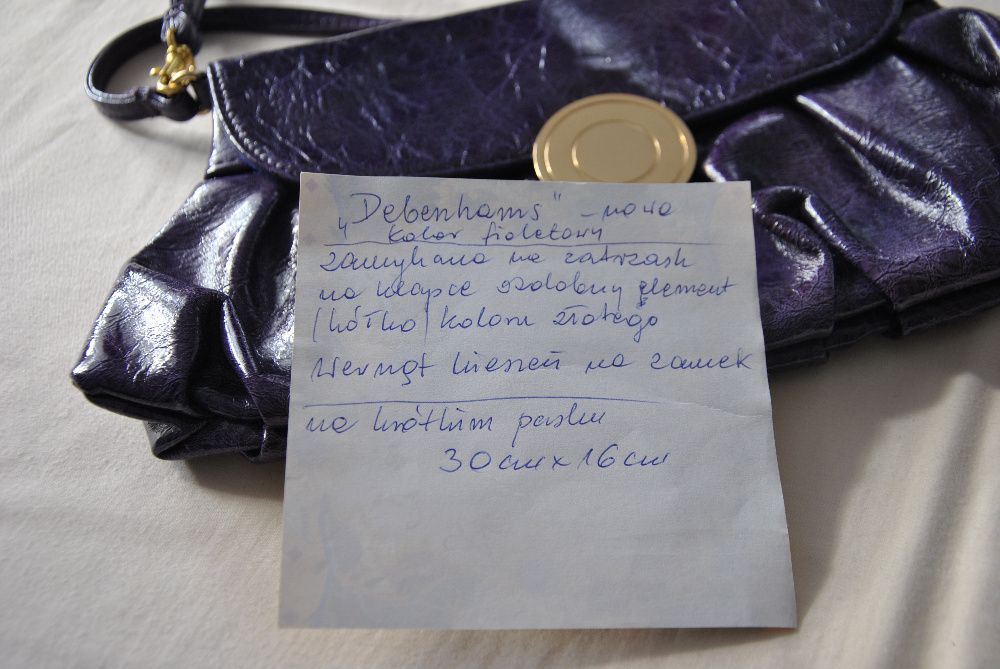 „Debenhams" - nowa
kolor fioletowy
zamykana na zatrzask
na klapce ozdobny element
(kółko) koloru złotego
Wewnąt kieszeń na zamek
na krótkim pasku
30cm x 16cm